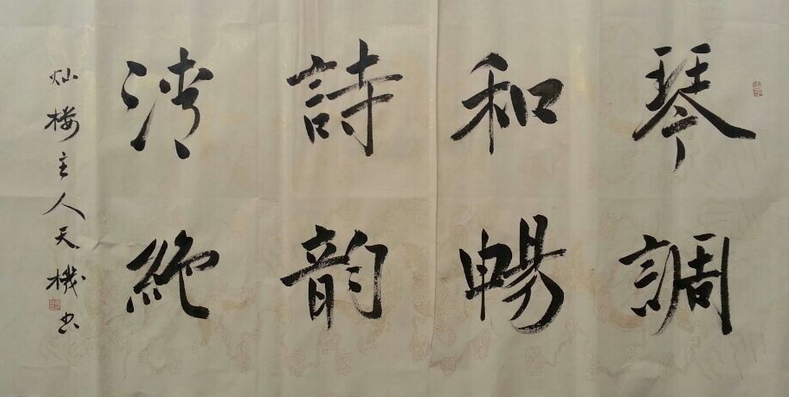 琴調
和暢
詩韵
清絶
灿楼主人天機书